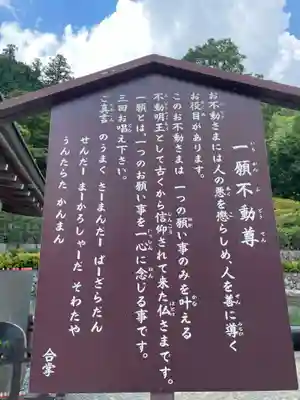 一願不動尊
お不動さまには人の悪を懲らしめ、人を善に導く
お役目があります。
このお不動さまは 一つの願い事のみを叶える
不動明王として古くから信仰されて来た仏さまです。
一願とは、一つのお願い事を一心に念じる事です。
三回お唱え下さい。
ご真言 のうまく さーまんだー ばーざらだん
せんだー まーかろしゃーだ そわたや
うんたらた かんまん
合掌